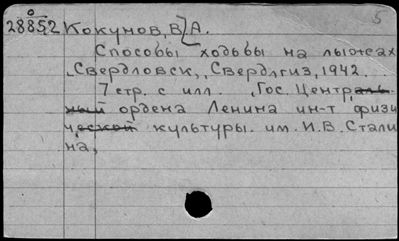 5
28852 Кокунов, В.А.
Способы ходьбы на лыжах
Свердловск, Свердлгиз, 1942.
7 стр. с илл. Гос. Централь-
ный ордена Ленина ин-т физи
ческой культуры. им. И.В. Стали
на,